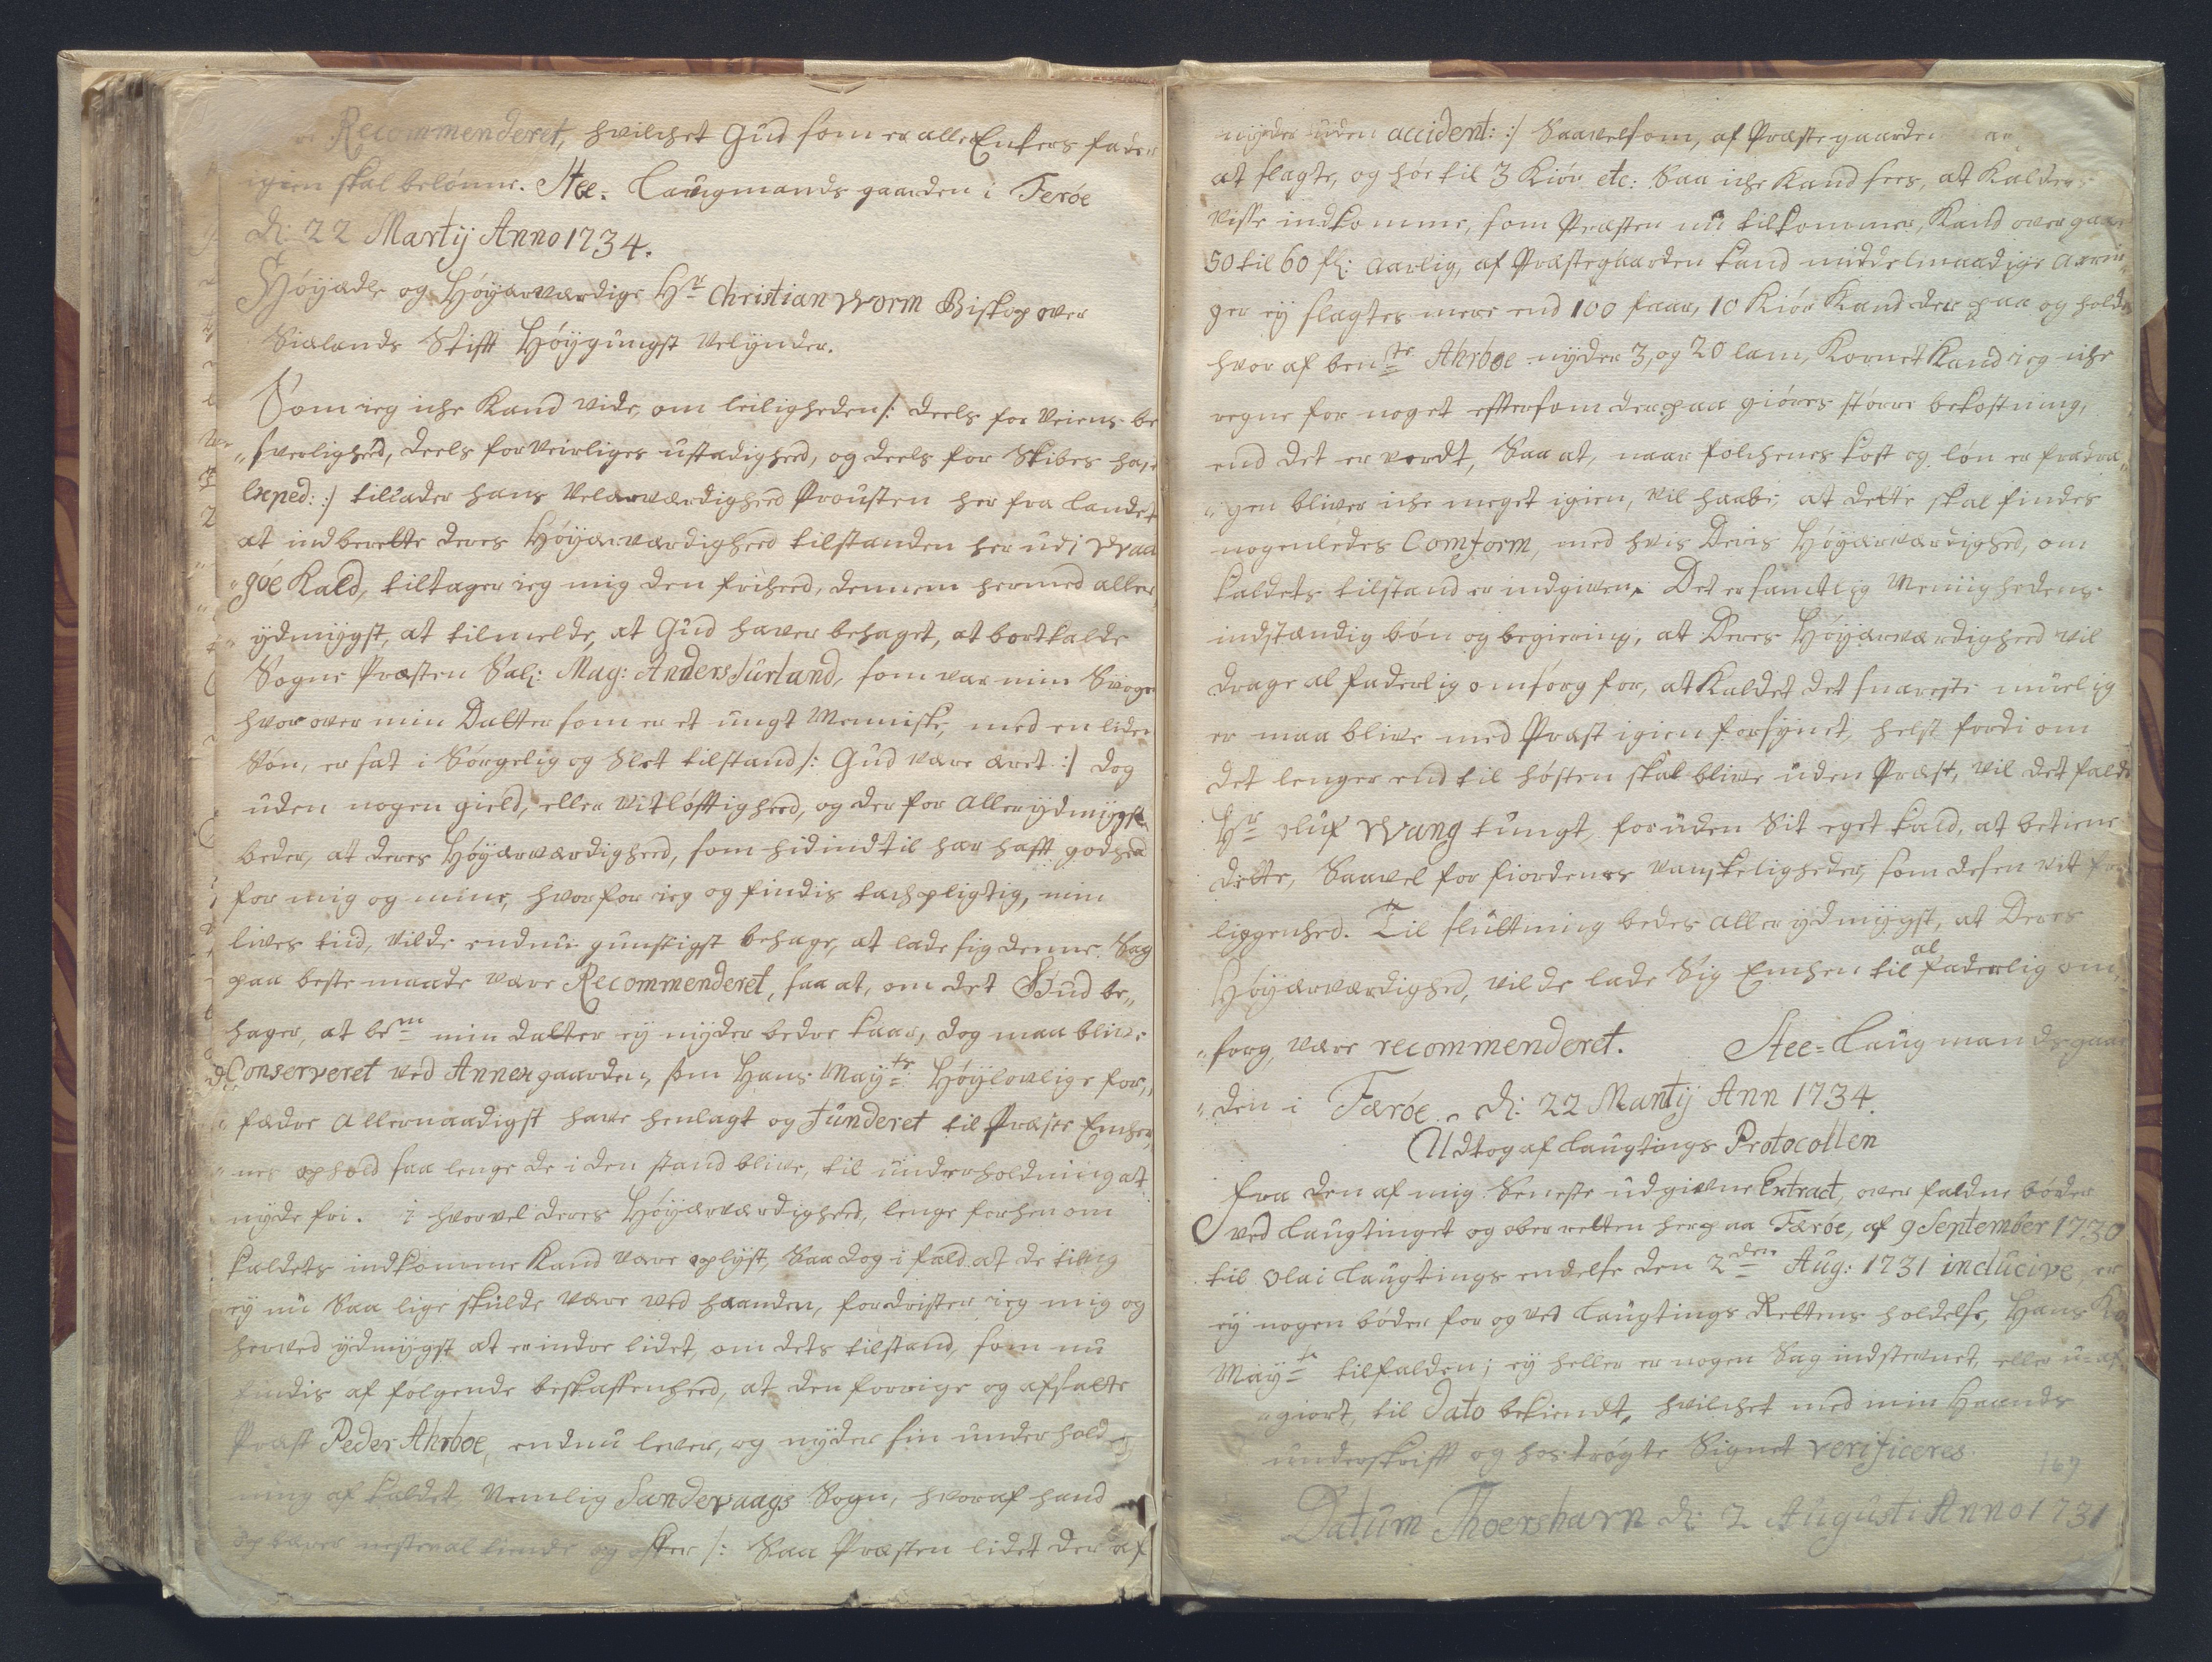 Recommenderet, hvilchet Gud som er alle Enkers fader
igien skal belønne. Stee- Laugmands gaarden i Ferøe
d: 22 Martij Anno 1734.
Høyædle og Høyærværdige Hr Christian Worm Biskop over
Siælands Stifft Høygunstigst Velynder.
Som ieg iche Kand vide, om leiligheden /: deels for Veiens be
„sverlighed, deels for Veirliges ustadighed, og deels for Skibes ha„
exped: :/ tillader hans Velærværdighed Prousten her fra Landet
at indberette deres Høyærværdighed tilstanden her udi Waa
„gøe Kald, tiltager ieg mig den friheed, dennem hermed aller
„ydmygst, at tilmelde, at Gud haver behaget, at bortkalde
Sogne Præsten Sal: Mag: Anders Jürland, som var min Sviger
hvor over min Datter som er et ungt Menniske, med en liden
Søn, er sat i Sørgelig og Slet tilstand /: Gud være æret :/ dog
uden nogen gield, eller Vitløfftigheed, og der for Allerydmygst
beder, at deres Høyærværdigheed, som hid indtil har hafft godhed
for mig og mine, hvorfor ieg og findis tachpligtig, min
lives tiid, vilde endnu gunstigst behage, at lade sig denne Sag
paa beste maade være Recommenderet, saa at, om det Gud be„
hager, at bem min datter ey nyder bedre kaar, dog maa blive
Conserveret ved Annexgaarden, som Hans Mayts Høylovlige for„
„fædre Allernaadigst have henlagt og funderet til Præste Enker„
„nes ophold saa lenge de i den stand blive, til underholdning at
nyde fri. i hvorvel deres Høyærværdigheed, lenge forhen om
kaldets indkomme Kand være oplyst, Saa dog i fald at de tiling
ey nu Saa lige skulde være ved haanden, fordrister ieg mig og
herved ydmygst at erindre lidet, om dets tilstand, som nu
findis af følgende beskaffenheed, at den forrige og afsatte
Præst Peder Ahrboe, endnu lever, og nyder sin underhold„
ning af kaldet Nemlig Sandevaags Sogn, hvoraf hand
opbærer nesten al tiende og offer /: Saa Præsten lidet der af
nyder uden accident: :/ Saavelsom, af Præstegaarden
at slagte, og høe til 3 Kiør etc: Saa iche Kand sees, at Kaldens
visse indkomme, som Præsten nu tilkommer, Kand overgaae
50 til 60 sl: Aarlig, af Præstegaarden kand middelmaadige Aarin„
ger ey slagtes mere end 100 faar, 10 Kiør Kand der paa og holdes
hvor af bente Ahrboe nyder 3, og 20 lam, Kornet Kand ieg iche
regne for noget effersom derpaa giøres større bekostning,
end det er verdt, Saa at, naar folchenes kost og løn er fradra„
„gen bliver iche meget igien, vil haabe, at dette skal findes
nogenledes Comform, med hvis Deris Høyærværdighed, om
kaldets tilstand er indgiven. Det er samtlig Meenighedens
indstændig bøn og begiering, at Deres Høyærværdigheed vil
drage al faderlig omsorg for, at Kaldet det snareste muelig
er maa blive med Præst igien forsynet, helst fordi om
det lenger end til høsten skal blive uden Præst, vil det falde
Hr Oluf Wang tungt, foruden Sit eget kald, at betiene
dette, Saavel for fiordenes vanskeligheder, som desen vit fra
liggenhed. Til sluttning bedes allerydmygst, at Deres
Høyærværdighed, vilde lade Sig Enchen til al faderlig om„
„sorg, være recommenderet. Stee- Laugmandsgaar
„den i Færøe. d: 22 Martij Ann 1734.
Udtog af laugtings Protocollen
fra den af mig Seneste udgivne Extract, over faldne bøder
ved Laugtinget og oberretten her paa Færøe, af 9 September 1730
til Olai laugtings endelse den 2den Aug: 1731 inclucive, er
ey nogen bøder for og ved laugtings Rettens holdelse, Hans Ko
Mayts tilfalden; ey heller er nogen Sag indstevnet, eller u-af
„giort, til Dato bekiendt, hvilchet med min Haands
underskrifft og hostrøgte Signet verificeres
169
Datum Thorshavn d: 2 Augusti Anno 1731